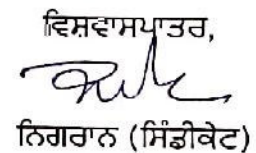 ਵਿਸ਼ਵਾਸਪਾਤਰ,
ਨਿਗਰਾਨ (ਸਿੰਡੀਕੇਟ)